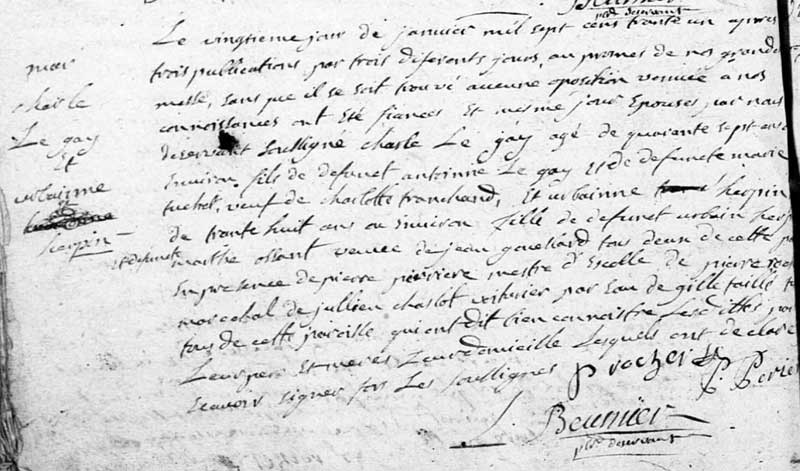 Beunier
ptre deservant
Le vingtieme jour de janvier mil sept cens trante un apres
trois publications par trois diferants jours, au promes de nos grande
messe, sans que il se soit trouvé aucune oposition venuée a nos
connoissances ont eté fiancés Et mesme jour Epousés par nous
deservant soussigné charle Le gay agé de quarante sept ans
Environ fils de defunct antoinne Le gay Et de defuncte marie
tuchet, veuf de charlotte tranchand, Et urbainne herpin
de trante huit ans ou Environ fille de defunct urbain herp
Et defuncte marthe ossant veuve de jean gouessard tous deux de cette p
En presence de pierre perriere mestre d'Escolle de pierre roch
marechal de jullien chaslot voiturier par Eau de gille taillé
tous de cette paroisse qui ont dit bien connoistre Lesdittes par
Leurs pere Et meres Leur domicille Lesquels ont declaré
scavoir signer fors Les soussignes
P rocher P. Perier
Beunier
ptre deservant
mar
charle
Le gay
Et
urbainne
herpin